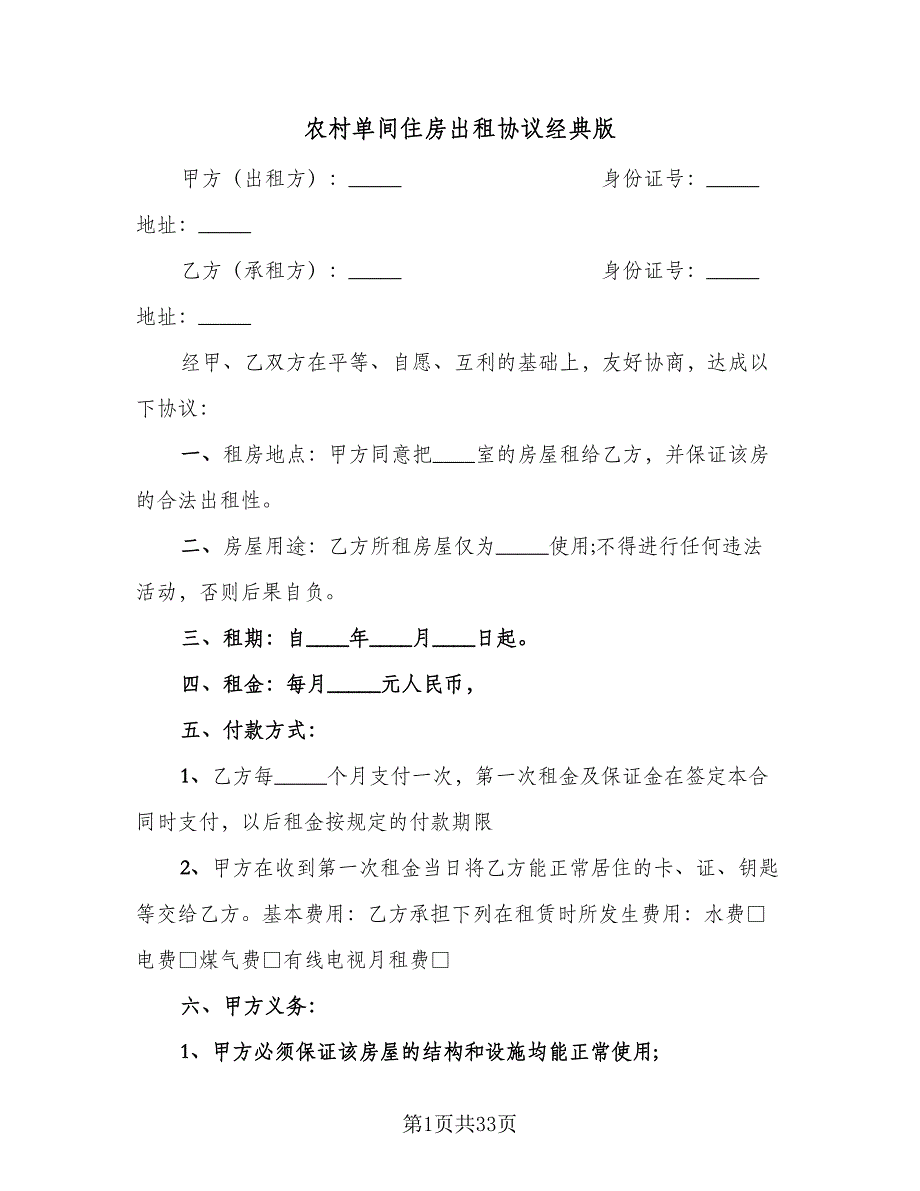 农村单间住房出租协议经典版
甲方（出租方）：_____ 身份证号：_____
地址：_____
乙方（承租方）：_____ 身份证号：_____
地址：_____
经甲、乙双方在平等、自愿、互利的基础上，友好协商，达成以
下协议：
一、租房地点：甲方同意把____室的房屋租给乙方，并保证该房
的合法出租性。
二、房屋用途：乙方所租房屋仅为_____使用;不得进行任何违法
活动，否则后果自负。
三、租期：自____年____月____日起。
四、租金：每月_____元人民币，
五、付款方式：
1、乙方每_____个月支付一次，第一次租金及保证金在签定本合
同时支付，以后租金按规定的付款期限
2、甲方在收到第一次租金当日将乙方能正常居住的卡、证、钥匙
等交给乙方。基本费用：乙方承担下列在租赁时所发生费用：水费□
电费□煤气费□有线电视月租费□
六、甲方义务：
1、甲方必须保证该房屋的结构和设施均能正常使用;
第1页共33页